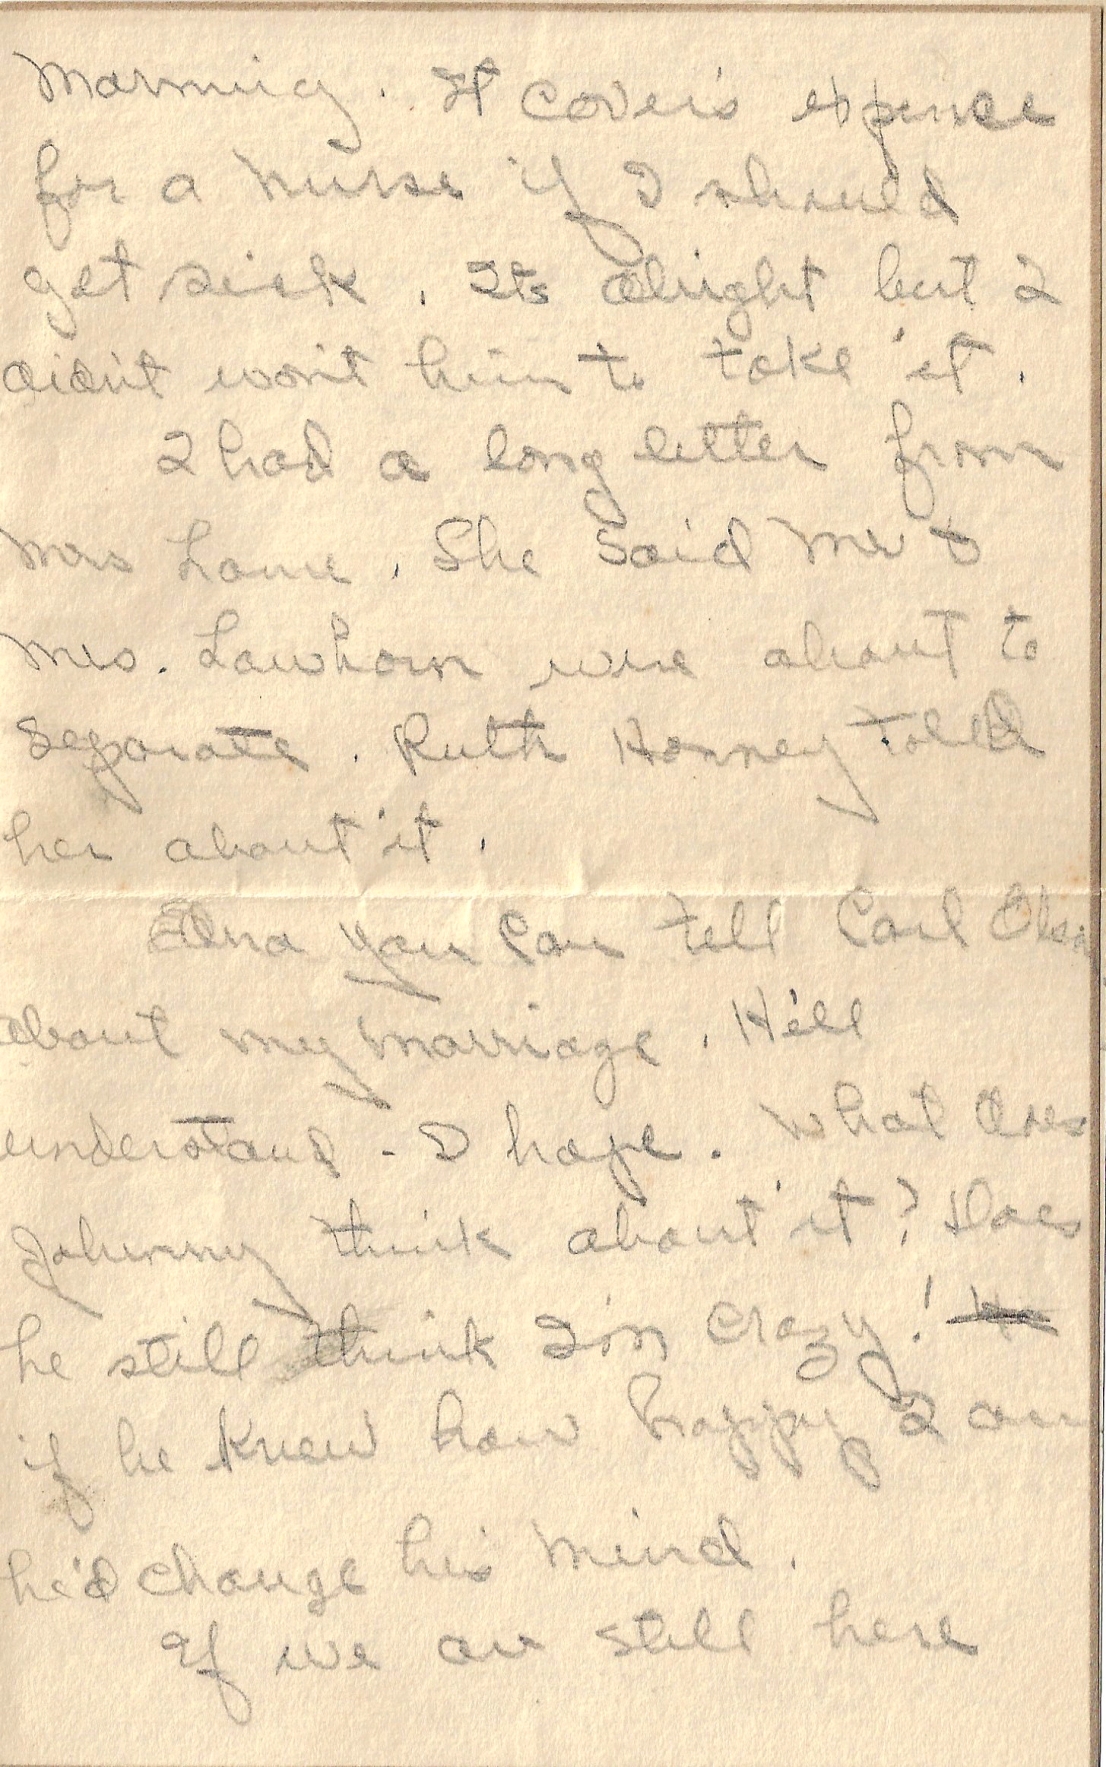 morning. It cover's expence
for a nurse if I should
get sick. Its alright but I
didn't won't him to take it.
I had a long letter from
Mrs Lane. She said Mr &
Mrs. Lawhorn were about to
Separate. Ruth Honney told
her about it.
Edna you can tell Carl Olson
about my marriage. He'll
understand - I hope. What does
Johnny think about it? Does
he still think I'm crazy!
if he knew how happy I am
he'd change his mind.
If we are still here